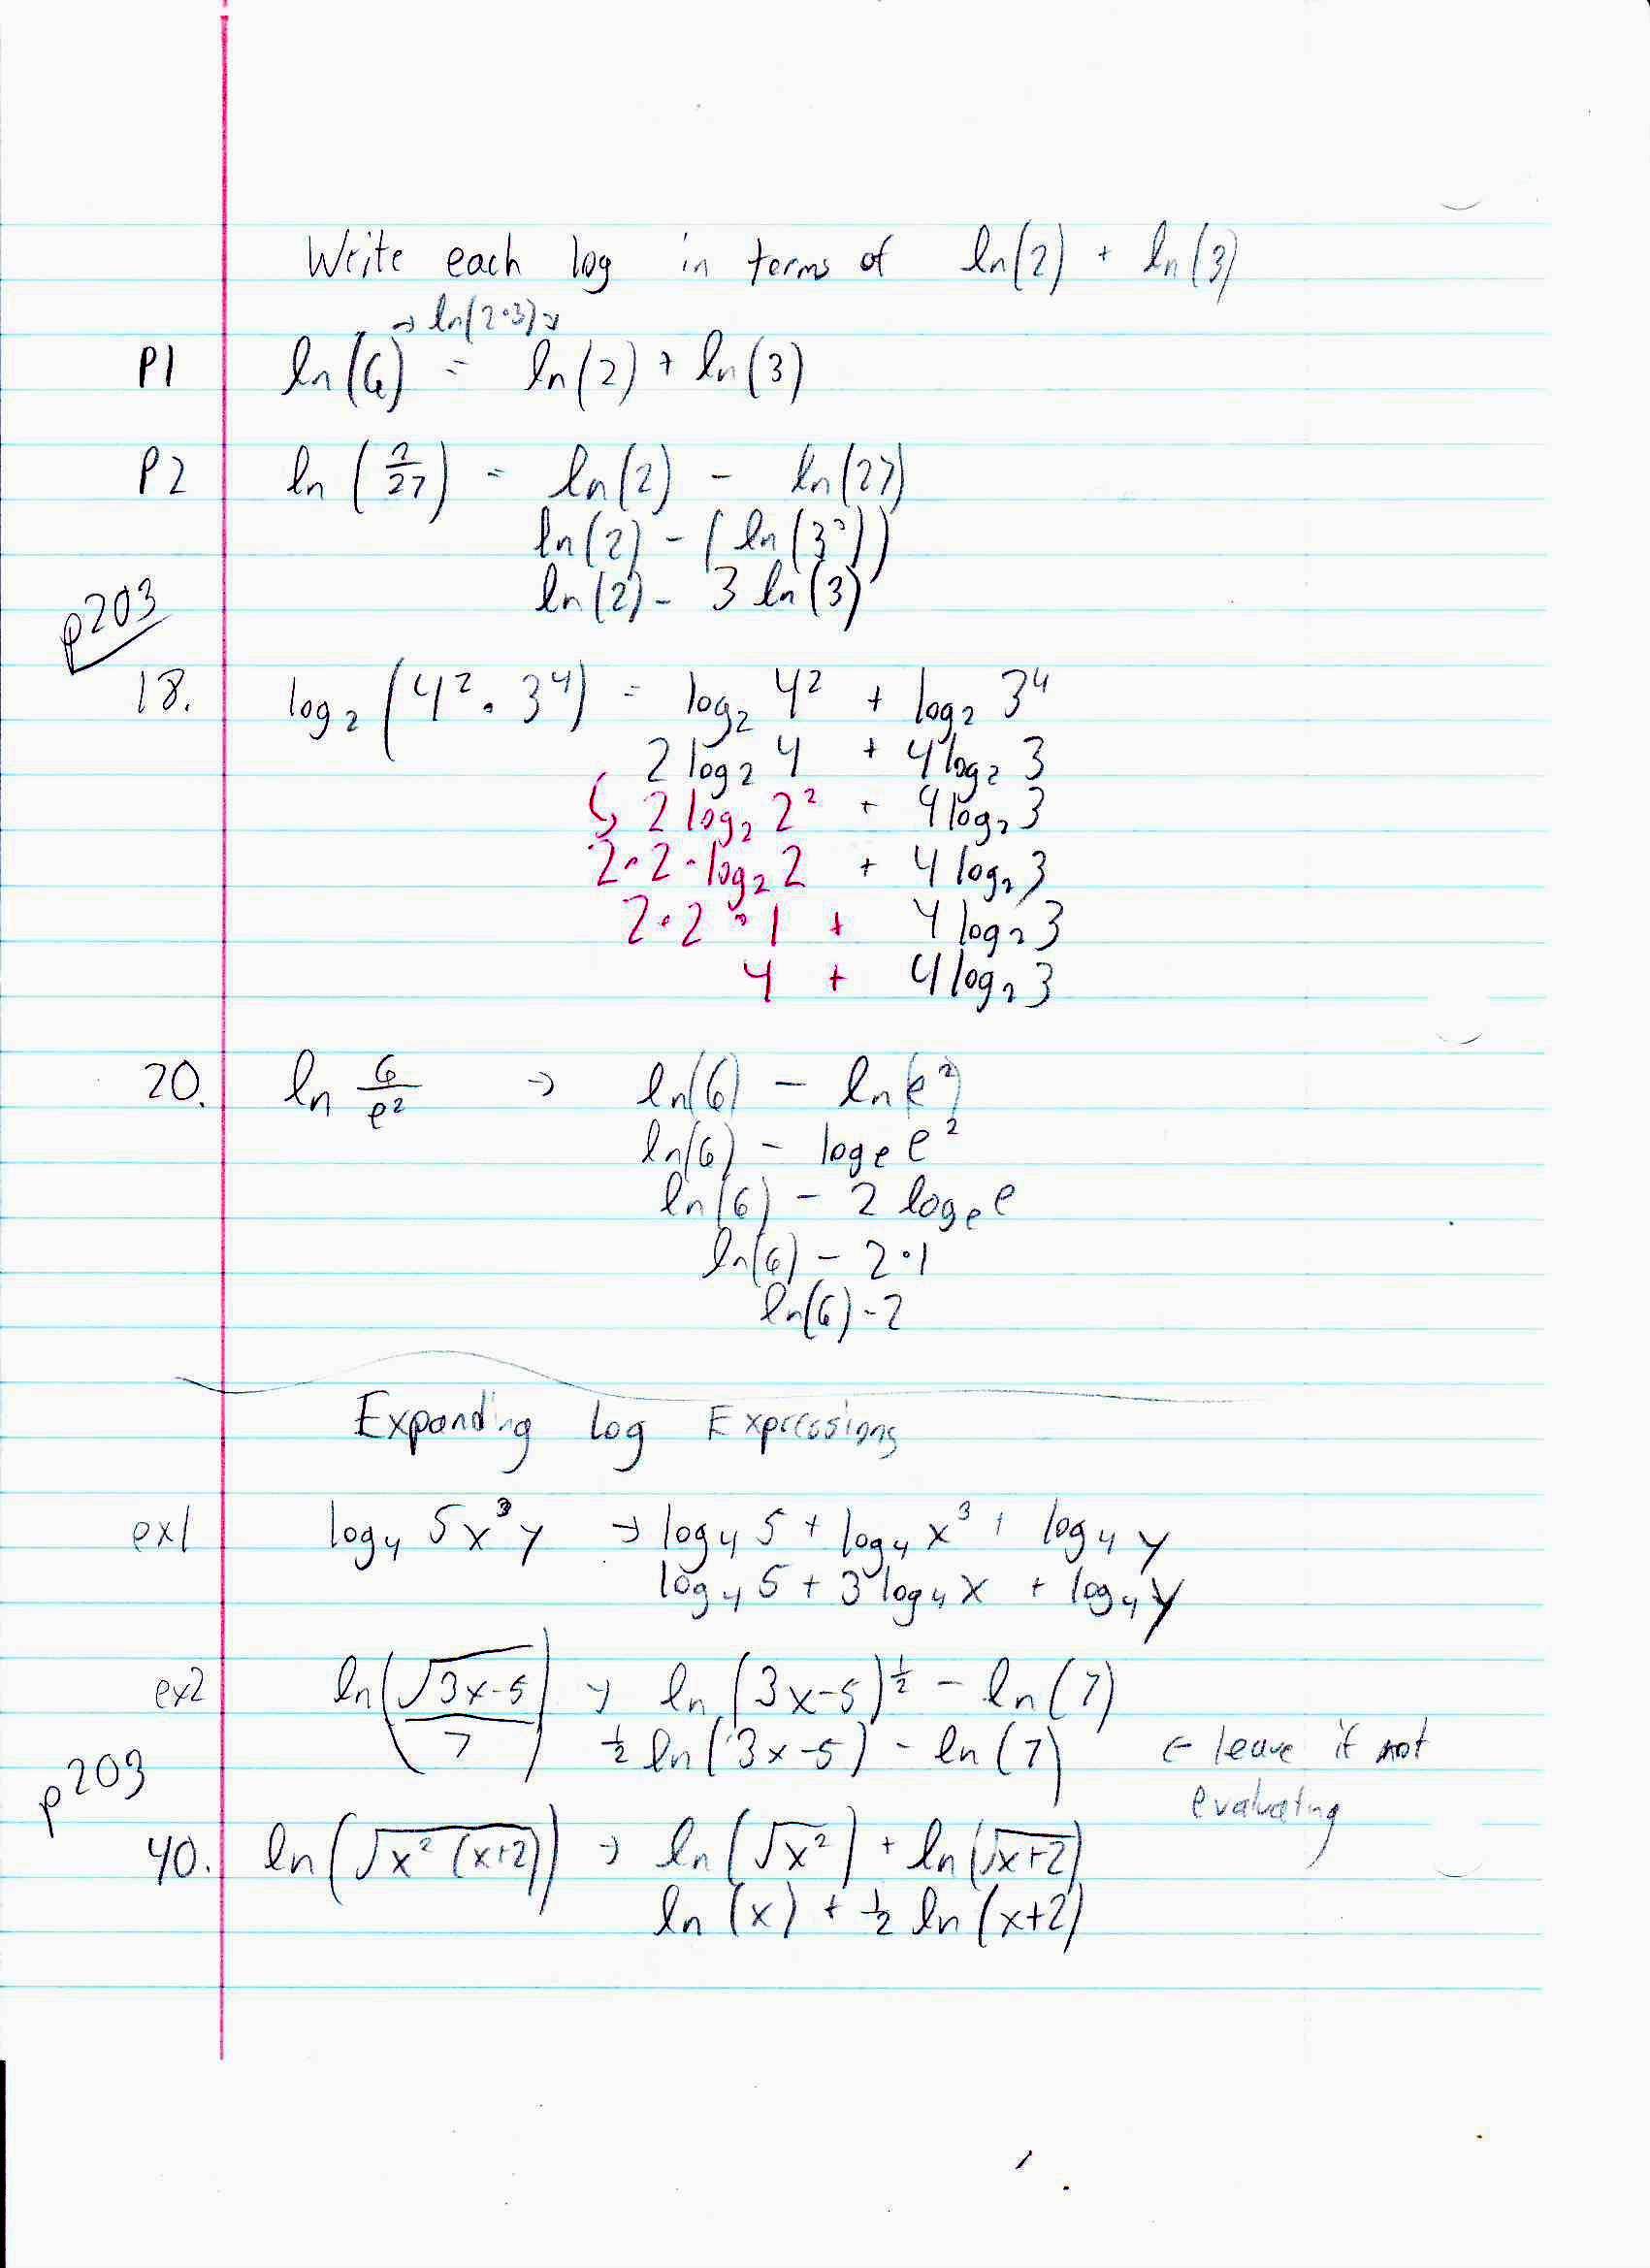 Write each log in terms of ln(2) + ln(3)
→ ln(2·3) ↘
P1 ln(6) = ln(2) + ln(3)
P2 ln(2/27) = ln(2) - ln(27)
ln(2) - (ln(3³))
ln(2) - 3 ln(3)
p203
18. log₂(4² · 3⁴) = log₂ 4² + log₂ 3⁴
2 log₂ 4 + 4 log₂ 3
↳ 2 log₂ 2² + 4 log₂ 3
2·2·log₂ 2 + 4 log₂ 3
2·2·1 + 4 log₂ 3
4 + 4 log₂ 3
20. ln 6/e² → ln(6) - ln(e²)
ln(6) - logₑ e²
ln(6) - 2 logₑ e
ln(6) - 2·1
ln(6) - 2
Expanding Log Expressions
ex1 log₄ 5x³y → log₄ 5 + log₄ x³ + log₄ y
log₄ 5 + 3 log₄ x + log₄ y
ex2 ln(√(3x-5)/7) → ln(3x-5)^½ - ln(7)
½ ln(3x-5) - ln(7) ← leave if not
evaluating
p203
40. ln(√(x²(x+2))) → ln(√x²) + ln(√(x+2))
ln(x) + ½ ln(x+2)